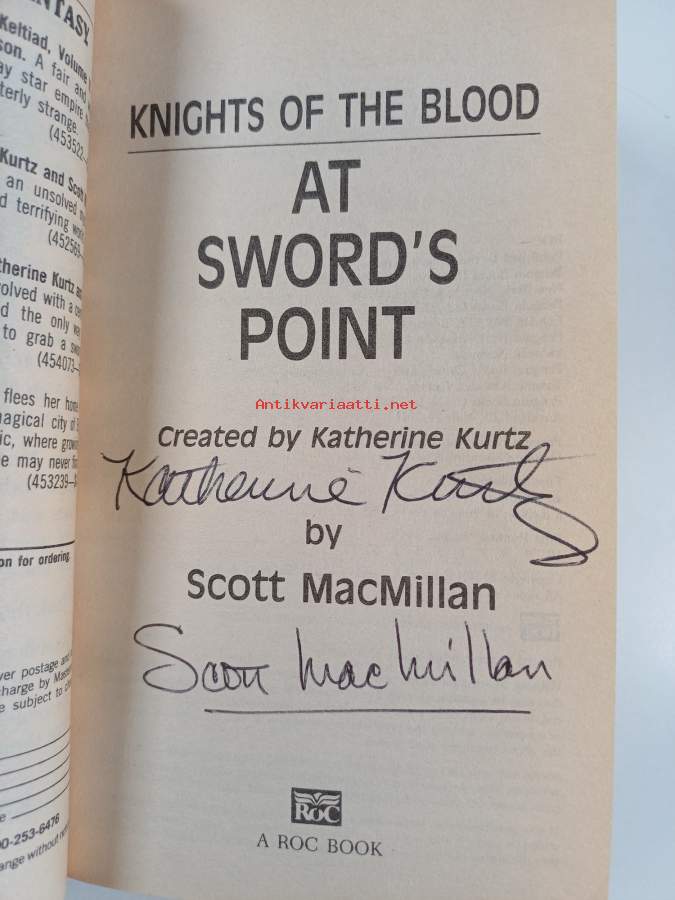 NTASY
Keltiad, Volume
son. A fair and
ay star empire
terly strange.
(453522—
Kurtz and Scott
an unsolved
d terrifying
(452565—
therine Kurtz
olved with a
d the only
to grab a
(454073—
flees her home
agical city of
ic, where
e may never
(453239—
on for ordering.
ver postage and
charge by
e subject to
e
00-253-6476
ange without
KNIGHTS OF THE BLOOD
AT
SWORD'S
POINT
Antikvariaatti.net
Created by Katherine Kurtz
Katherine Kurtz
by
Scott MacMillan
Scott MacMillan
ROC
A ROC BOOK